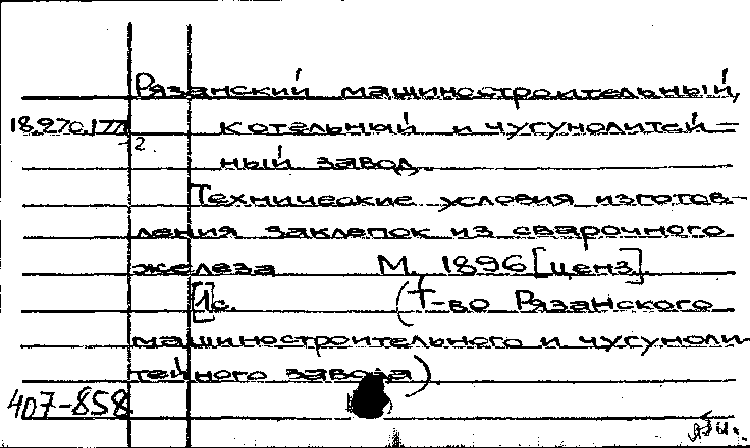 Рязанский машиностроительный,
18.270.177 котельный и чугунолитей-
2. ный завод.
Технические условия изготов-
ления заклепок из сварочного
железа М. 1896 [ценз].
[1]с. (Т-во Рязанского
машиностроительного и чугуноли
тейного завода)
407-858